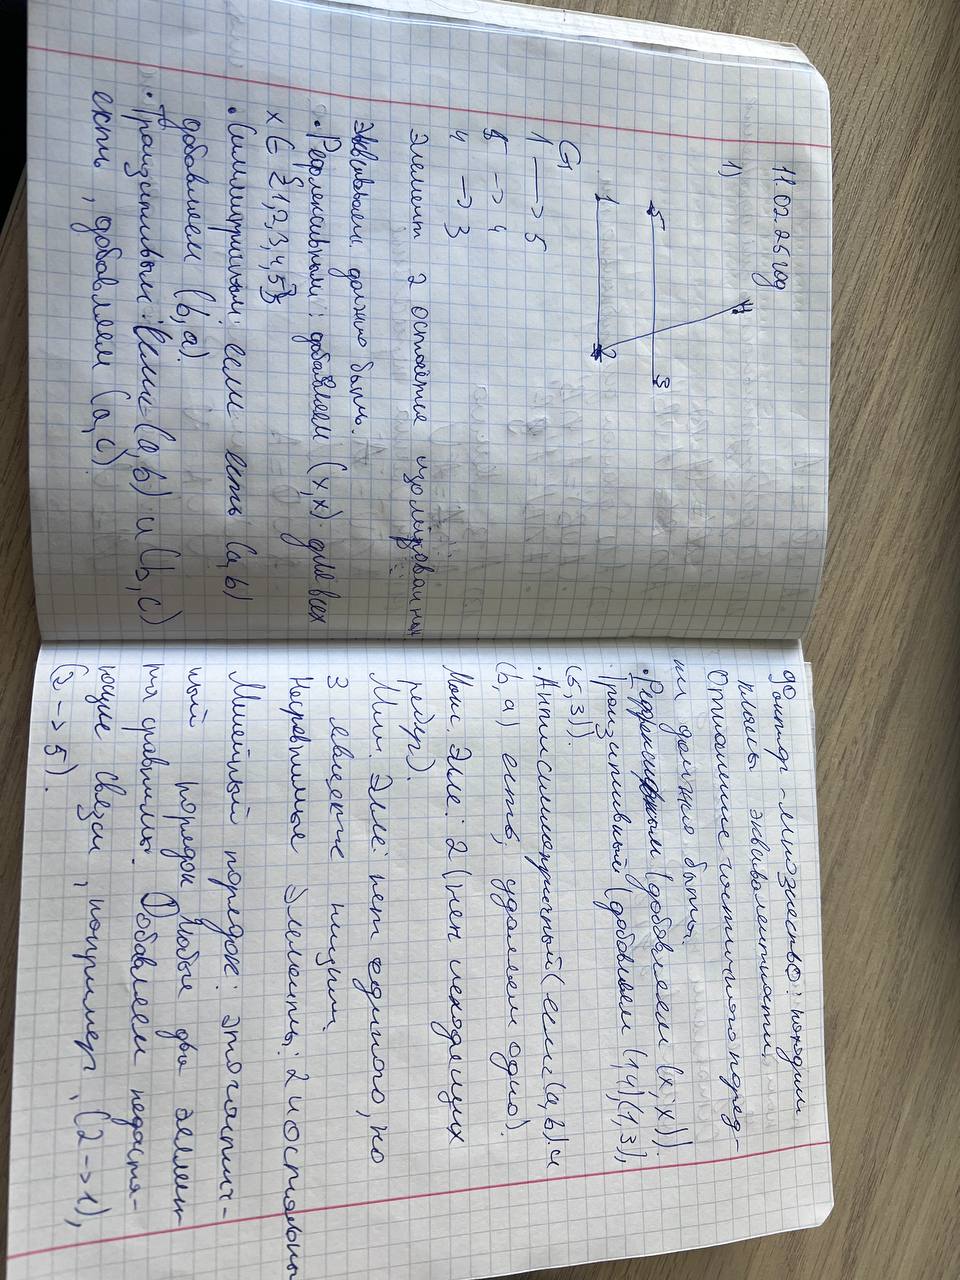 11.02.25 год
1)
4
5 3
1 2
G
1 —> 5
5 -> 4
4 -> 3
Элемент 2 остаётся изолированным
Эквивален должно быть.
• Рефлексивным: добавляем (x,x) для всех
x ∈ {1,2,3,4,5}
• Симметричным: если есть (a,b)
добавляем (b,a).
• Транзитивым: Если (a,b) и (b,c)
есть, добавляем (a,c).
Фактор-множество: находим
классы эквивалентности,
Отношение частичного поряд-
ки должно быть:
• Рефлексивным (добавляем (x,x)).
• Транзитивный (добавляем (1,4)(1,3),
(5,3)).
• Антисимметричный (если (a,b) и
(b,a) есть, удаляем одно).
Макс. Эле: 2 (нен исходящих
ребер).
Мин. Эле: нет единого, но
3 явлеетс нищим.
Несравнимые Элементы: 2 и остальны
Линейный порядок: это частич-
ный порядок любые два элемен-
та сравнимы. Добавляем недоста-
ющие связи, например, (2 -> 1),
(2 -> 5).